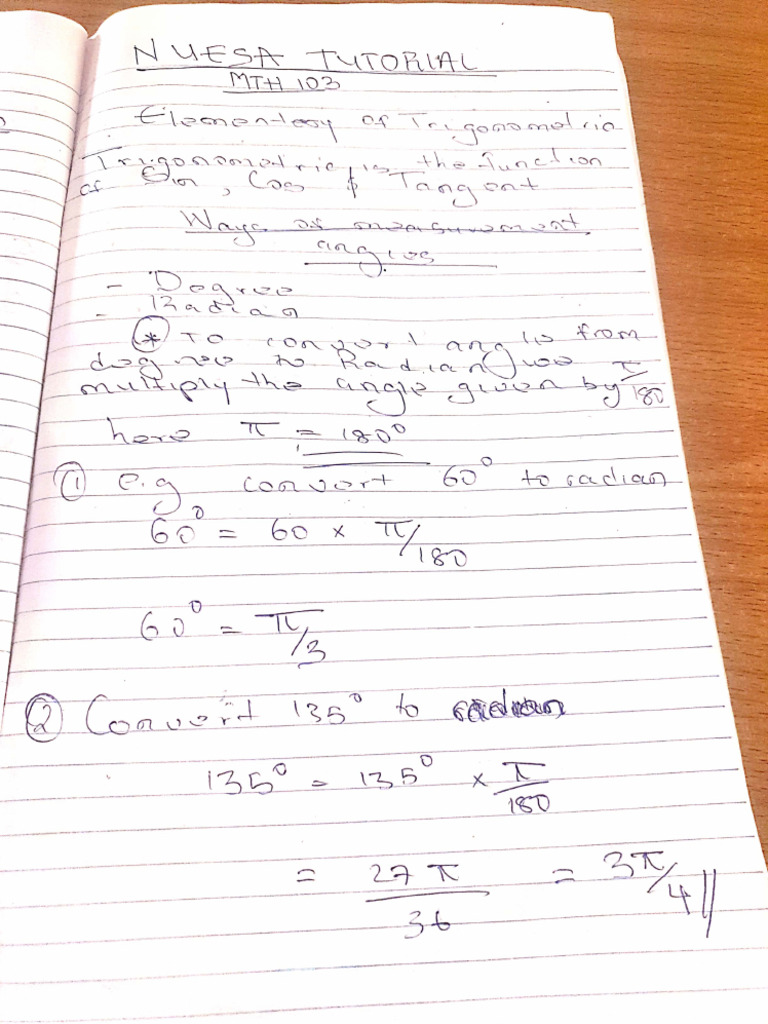 NUESA TUTORIAL
MTH 103
Elementesy of Trigonometric
Trigonometric is the function
of Sin, Cos & Tangent
Ways of measurement
angles
- Degree
- Radian
* To convert angle from
degree to Radian, we
multiply the angle given by π/180
here π = 180°
① e.g convert 60° to radian
60° = 60 × π/180
60° = π/3
② Convert 135° to radian
135° = 135° × π/180
= 27π/36 = 3π/4